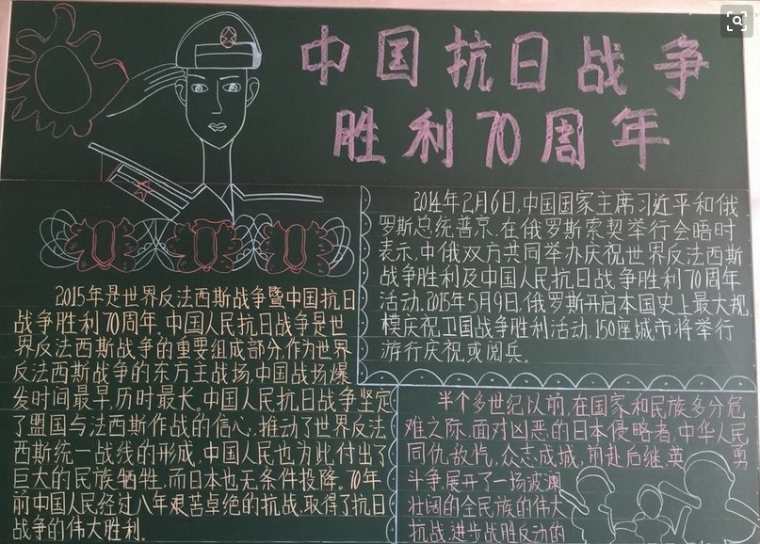 中国抗日战争
胜利70周年
2014年2月6日,中国国家主席习近平和俄
罗斯总统普京,在俄罗斯索契举行会晤时
表示,中俄双方共同举办庆祝世界反法西斯
战争胜利及中国人民抗日战争胜利70周年
活动.2015年5月9日,俄罗斯开启本国史上最大规
模庆祝卫国战争胜利活动,150座城市将举行
游行庆祝,或阅兵。
2015年是世界反法西斯战争暨中国抗日
战争胜利70周年,中国人民抗日战争是世
界反法西斯战争的重要组成部分,作为世界
反法西斯战争的东方主战场,中国战场爆
发时间最早,历时最长。中国人民抗日战争坚定
了盟国与法西斯作战的信心,推动了世界反法
西斯统一战线的形成,中国人民也为此付出了
巨大的民族牺牲,而日本也无条件投降。70年
前中国人民经过八年艰苦卓绝的抗战,取得了抗日
战争的伟大胜利.
半个多世纪以前,在国家和民族多分危
难之际,面对凶恶的日本侵略者,中华人民
同仇敌忾,众志成城,前赴后继,英勇
斗争展开了一场波澜
壮阔的全民族的伟大
抗战,进步战胜反动的